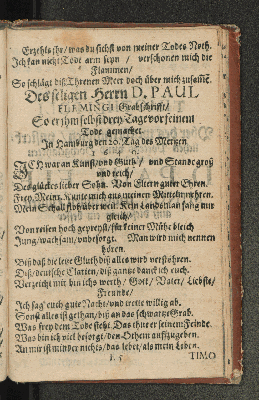 Erzehls ihr/ was du siehst von meiner Todes Noth.
Ich kan nicht Tode arm seyn / verschonen mich die
Flammen/
So schlägt diß Threnen Meer doch über mich zusam̃.
Des seligen Herrn D. PAUL
FLEMINGI Grabschrifft/
So er ihm selbst drey Tage vor seinem
Tode gemachet.
In Hamburg den 28. Tag des Mertzen
ICH war an Kunst/ und Guth/ und Stande groß
und reich/
Des glückes lieber Sohn. Von Eltern guter Ehren.
Frey/ Meine. Kunte mich aus meinen Mitteln nehren.
Mein Schall floh über weit. Kein Landsman sang mir
gleich/
Von reisen hoch gepreyst/ für keiner Mühe bleich
Jung/ wachsam/ unbesorgt. Man wird mich nennen
hören.
Biß daß die letze Gluth diß alles wird verstöhren.
Diß/ deutsche Clarien/ diß gantze danck ich euch.
Verzeiht mir bin ichs werth / Gott/ Vater/ Liebste/
Freunde/
Ich sag euch gute Nacht/ und trette willig ab.
Sonst alles ist gethan/ biß an das schwartze Grab.
Was frey dem Tode steht. Das thu er seinem Feinde.
Was bin ich viel besorgt/ den Othem auffzugeben.
An mir ist minder nichts/ das lebet/ als mein Leben.
TIMO